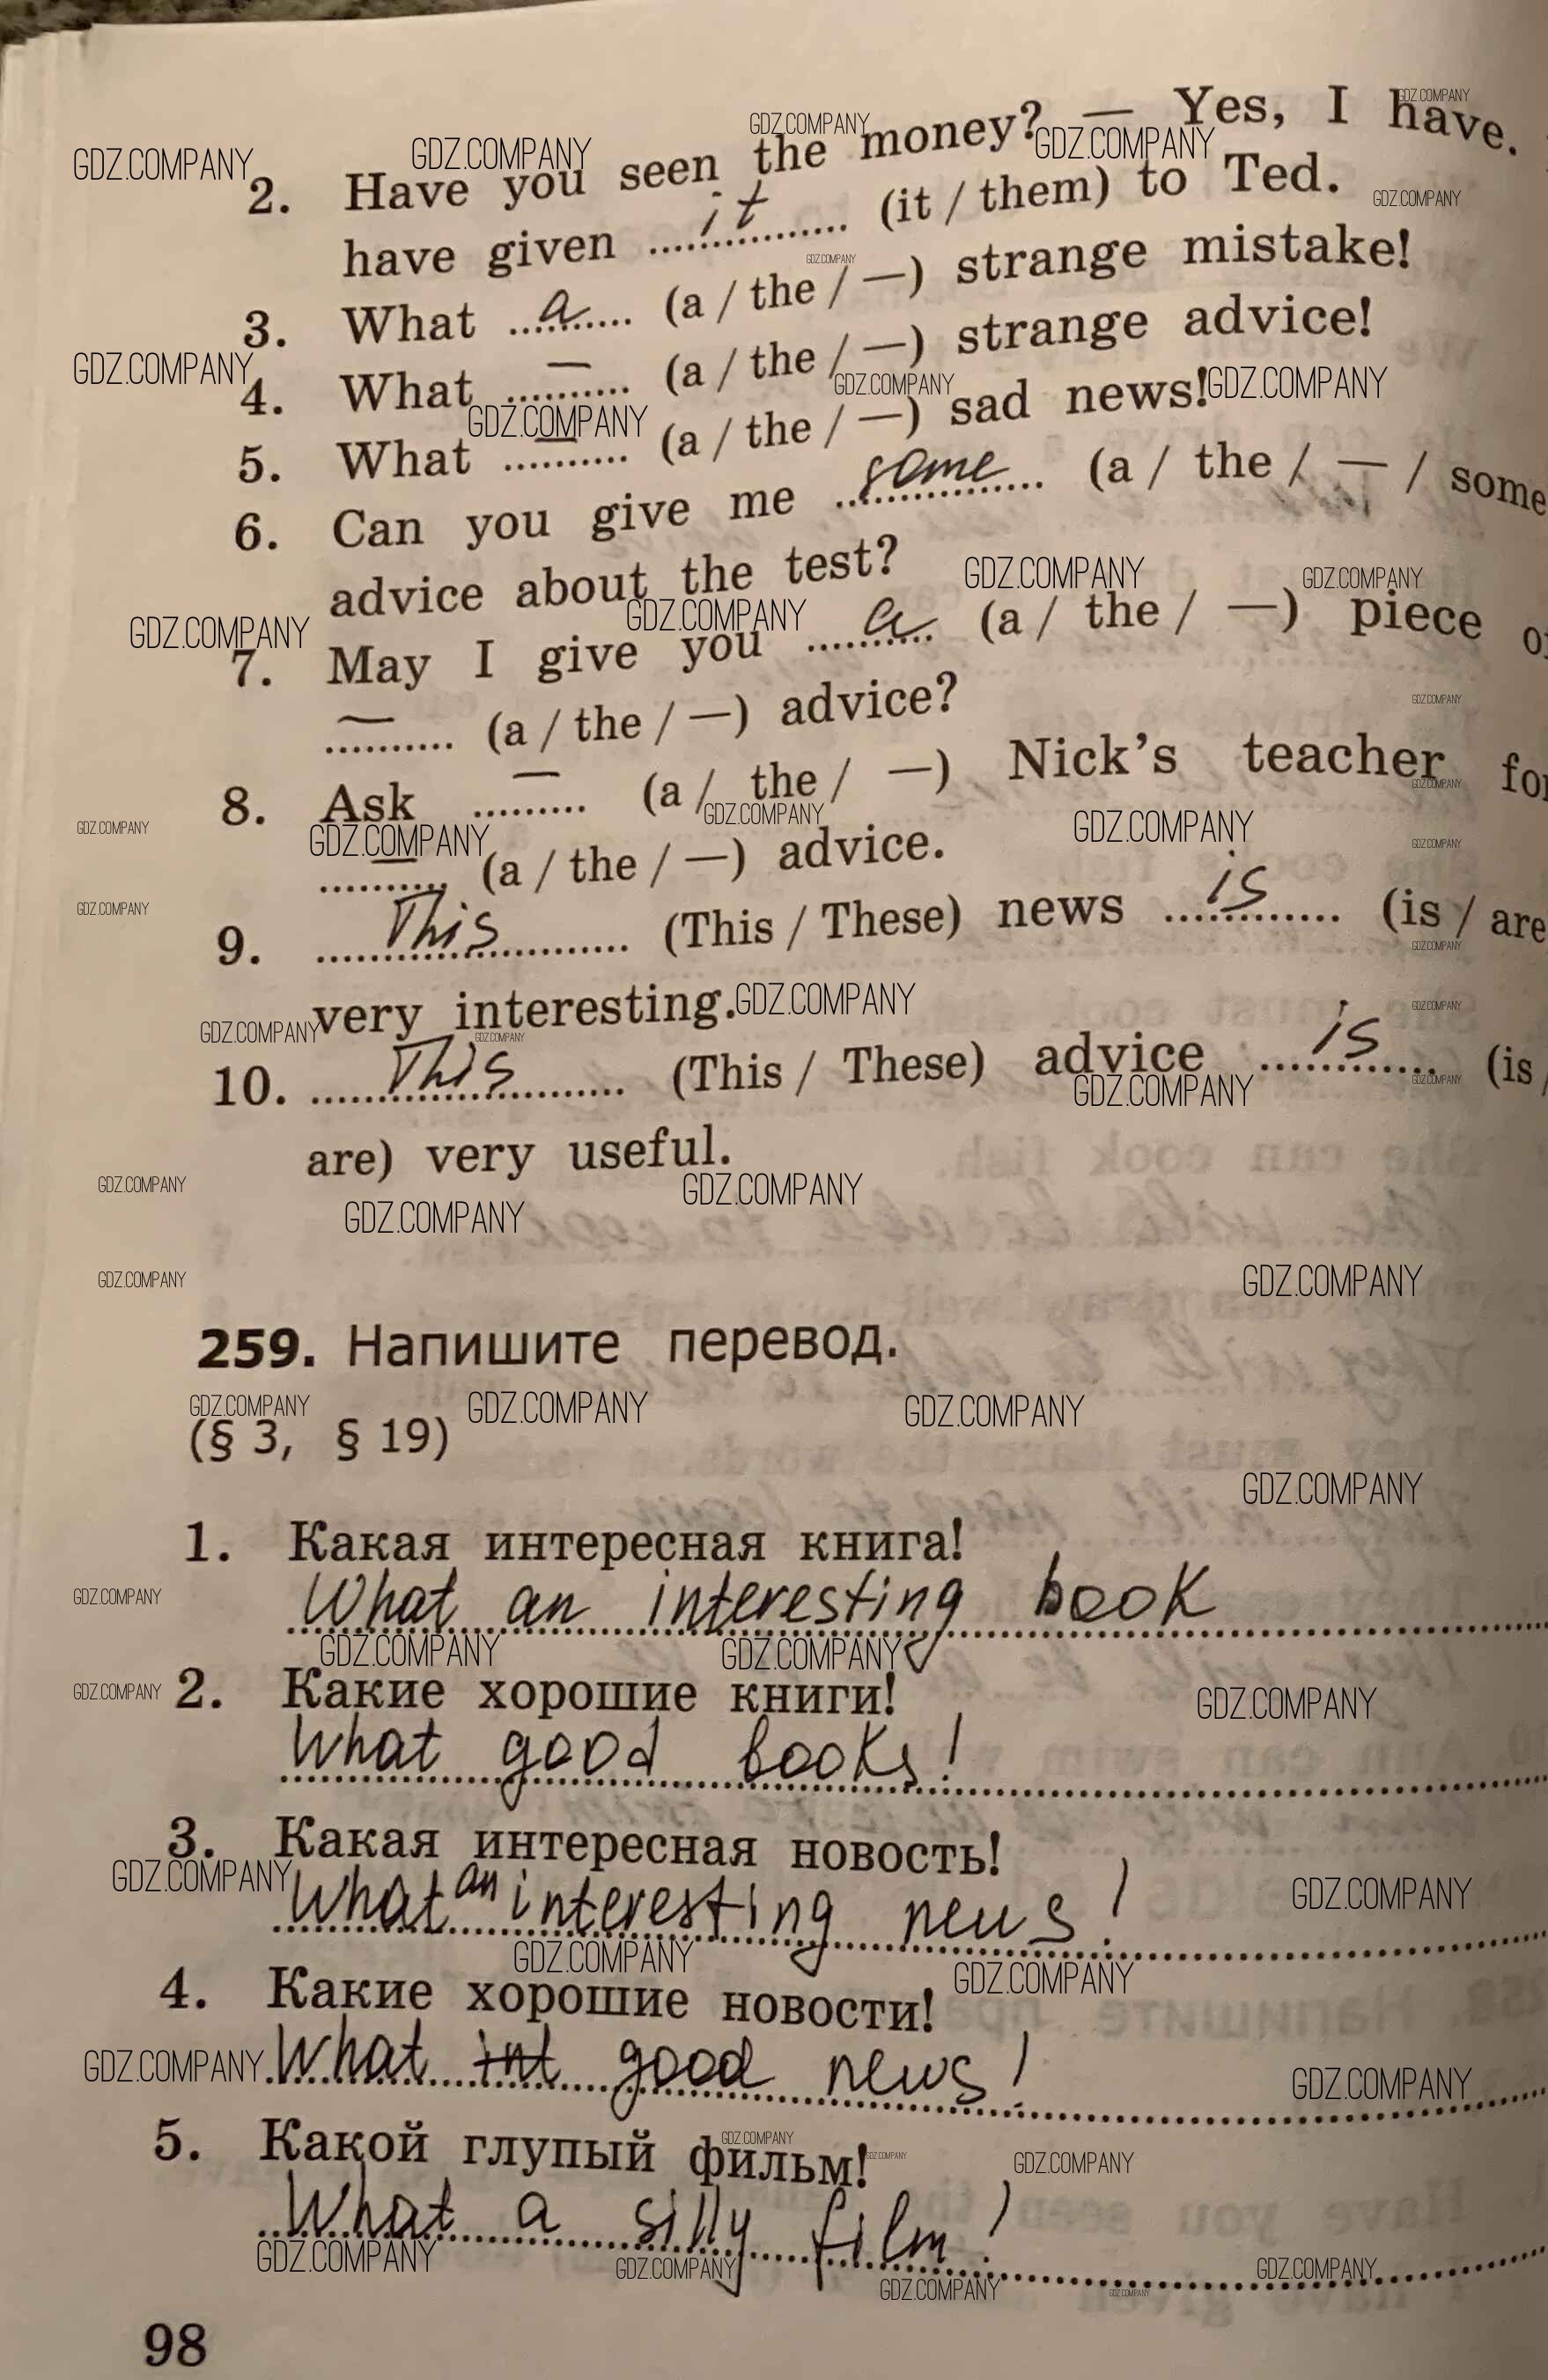 2. Have you seen the money? — Yes, I have.
have given it (it / them) to Ted.
3. What a (a / the / —) strange mistake!
4. What — (a / the / —) strange advice!
5. What — (a / the / —) sad news!
6. Can you give me some (a / the / — / some
advice about the test?
7. May I give you a (a / the / —) piece of
— (a / the / —) advice?
8. Ask — (a / the / —) Nick's teacher for
— (a / the / —) advice.
9. This (This / These) news is (is / are
very interesting.
10. This (This / These) advice is (is /
are) very useful.
259. Напишите перевод.
(§ 3, § 19)
1. Какая интересная книга!
What an interesting book
2. Какие хорошие книги!
What good books!
3. Какая интересная новость!
What an interesting news!
4. Какие хорошие новости!
What int good news!
5. Какой глупый фильм!
What a silly film!
98
GDZ.COMPANY